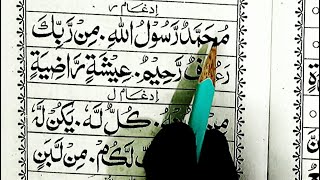 ادغام ر
مُحَمَّدٌ رَّسُوْلُ اللهِ۔ مِنْ رَّبِّكَ
رَءُوْفٌ رَّحِيْمٌ۔ عِيْشَةٍ رَّاضِيَةٍ
ادغام ل
كُلٌّ لَّهٗ۔ يَكُنْ لَّهٗ
لَّكُمْ۔ مِنْ لَّبَنٍ